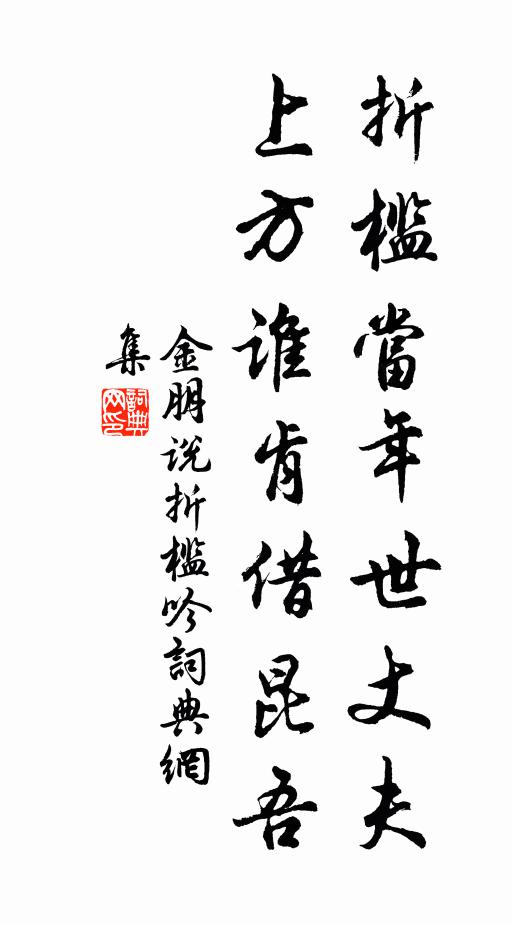 折檻當年世丈夫
上方誰肯借昆吾
金朋说折檻吟詞典網
集
詞典
网印